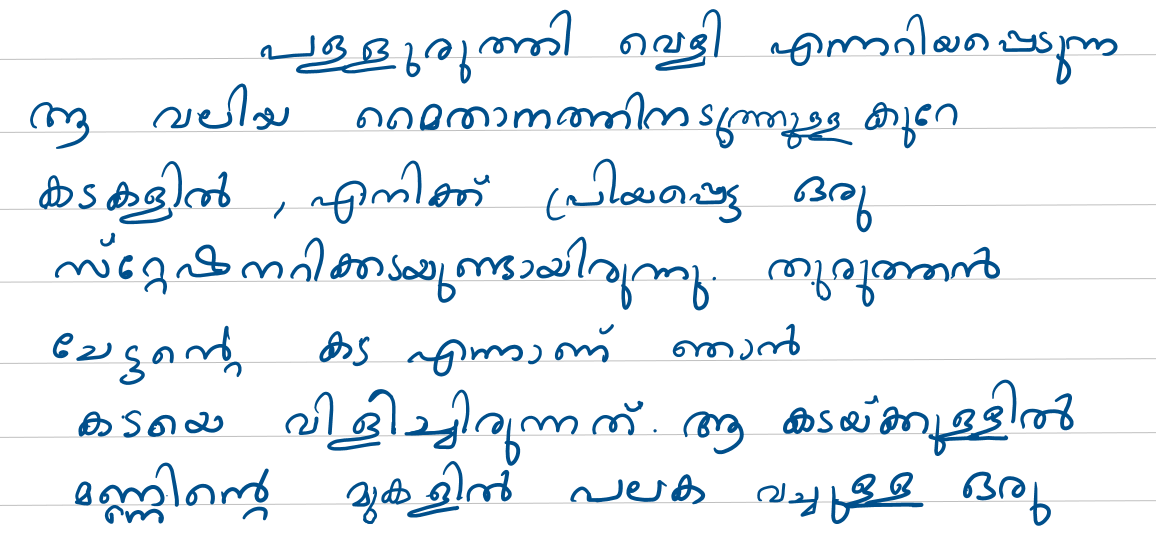 പള്ളുരുത്തി വെളി എന്നറിയപ്പെടുന്ന
ആ വലിയ മൈതാനത്തിനടുത്തുള്ള കുറേ
കടകളിൽ , എനിക്ക് പ്രിയപ്പെട്ട ഒരു
സ്റ്റേഷനറിക്കടയുണ്ടായിരുന്നു. തുരുത്തൻ
ചേട്ടന്റെ കട എന്നാണ് ഞാൻ
കടയെ വിളിച്ചിരുന്നത്. ആ കടയ്ക്കുള്ളിൽ
മണ്ണിന്റെ മുകളിൽ പലക വച്ചുള്ള ഒരു